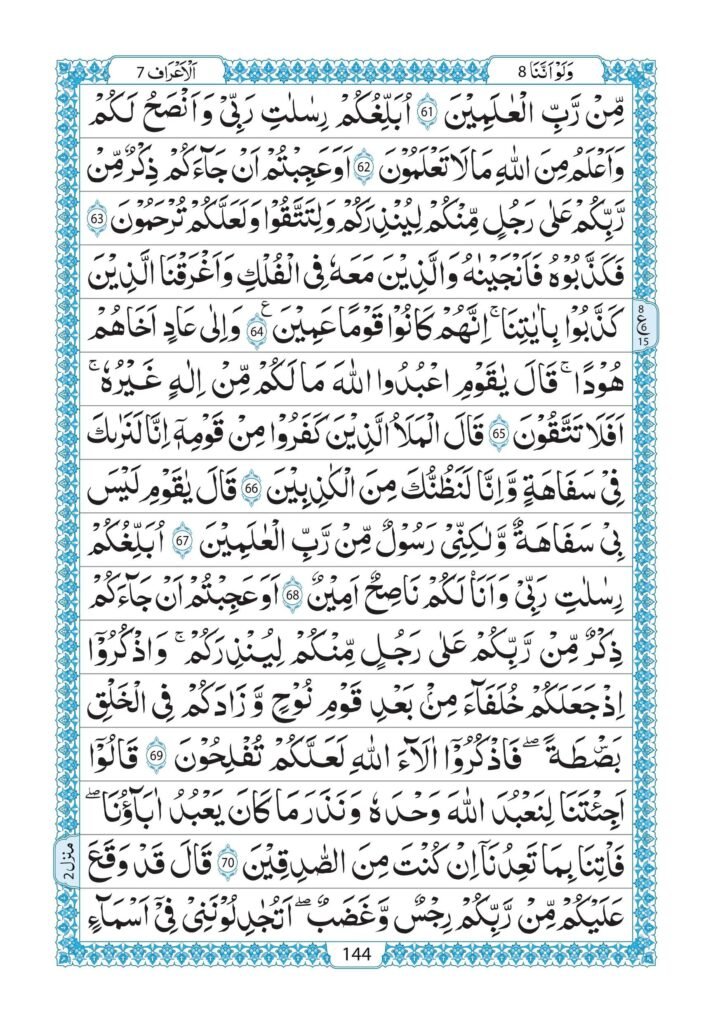 وَلَوْ اَنَّنَا 8
اَلْاَعْرَاف 7
مِّنْ رَّبِّ الْعٰلَمِيْنَ 61 اُبَلِّغُكُمْ رِسٰلٰتِ رَبِّىْ وَاَنْصَحُ لَكُمْ
وَاَعْلَمُ مِنَ اللّٰهِ مَا لَا تَعْلَمُوْنَ 62 اَوَعَجِبْتُمْ اَنْ جَآءَكُمْ ذِكْرٌ مِّنْ
رَّبِّكُمْ عَلٰى رَجُلٍ مِّنْكُمْ لِيُنْذِرَكُمْ وَلِتَتَّقُوْا وَلَعَلَّكُمْ تُرْحَمُوْنَ 63
فَكَذَّبُوْهُ فَاَنْجَيْنٰهُ وَالَّذِيْنَ مَعَهٗ فِى الْفُلْكِ وَاَغْرَقْنَا الَّذِيْنَ
كَذَّبُوْا بِاٰيٰتِنَا ۚ اِنَّهُمْ كَانُوْا قَوْمًا عَمِيْنَ ع 64 وَاِلٰى عَادٍ اَخَاهُمْ
8 ع 6 15
هُوْدًا ۚ قَالَ يٰقَوْمِ اعْبُدُوا اللّٰهَ مَا لَكُمْ مِّنْ اِلٰهٍ غَيْرُهٗ ۚ
اَفَلَا تَتَّقُوْنَ 65 قَالَ الْمَلَاُ الَّذِيْنَ كَفَرُوْا مِنْ قَوْمِهٖٓ اِنَّا لَنَرٰىكَ
فِىْ سَفَاهَةٍ وَّاِنَّا لَنَظُنُّكَ مِنَ الْكٰذِبِيْنَ 66 قَالَ يٰقَوْمِ لَيْسَ
بِىْ سَفَاهَةٌ وَّلٰكِنِّىْ رَسُوْلٌ مِّنْ رَّبِّ الْعٰلَمِيْنَ 67 اُبَلِّغُكُمْ
رِسٰلٰتِ رَبِّىْ وَاَنَا لَكُمْ نَاصِحٌ اَمِيْنٌ 68 اَوَعَجِبْتُمْ اَنْ جَآءَكُمْ
ذِكْرٌ مِّنْ رَّبِّكُمْ عَلٰى رَجُلٍ مِّنْكُمْ لِيُنْذِرَكُمْ ۚ وَاذْكُرُوْٓا
اِذْ جَعَلَكُمْ خُلَفَآءَ مِنْۢ بَعْدِ قَوْمِ نُوْحٍ وَّزَادَكُمْ فِى الْخَلْقِ
بَصْۜطَةً ۖ فَاذْكُرُوْٓا اٰلَآءَ اللّٰهِ لَعَلَّكُمْ تُفْلِحُوْنَ 69 قَالُوْٓا
اَجِئْتَنَا لِنَعْبُدَ اللّٰهَ وَحْدَهٗ وَنَذَرَ مَا كَانَ يَعْبُدُ اٰبَآؤُنَا ۖ
فَاْتِنَا بِمَا تَعِدُنَآ اِنْ كُنْتَ مِنَ الصّٰدِقِيْنَ 70 قَالَ قَدْ وَقَعَ
منزل 2
عَلَيْكُمْ مِّنْ رَّبِّكُمْ رِجْسٌ وَّغَضَبٌ ۖ اَتُجَادِلُوْنَنِىْ فِىْٓ اَسْمَآءٍ
144